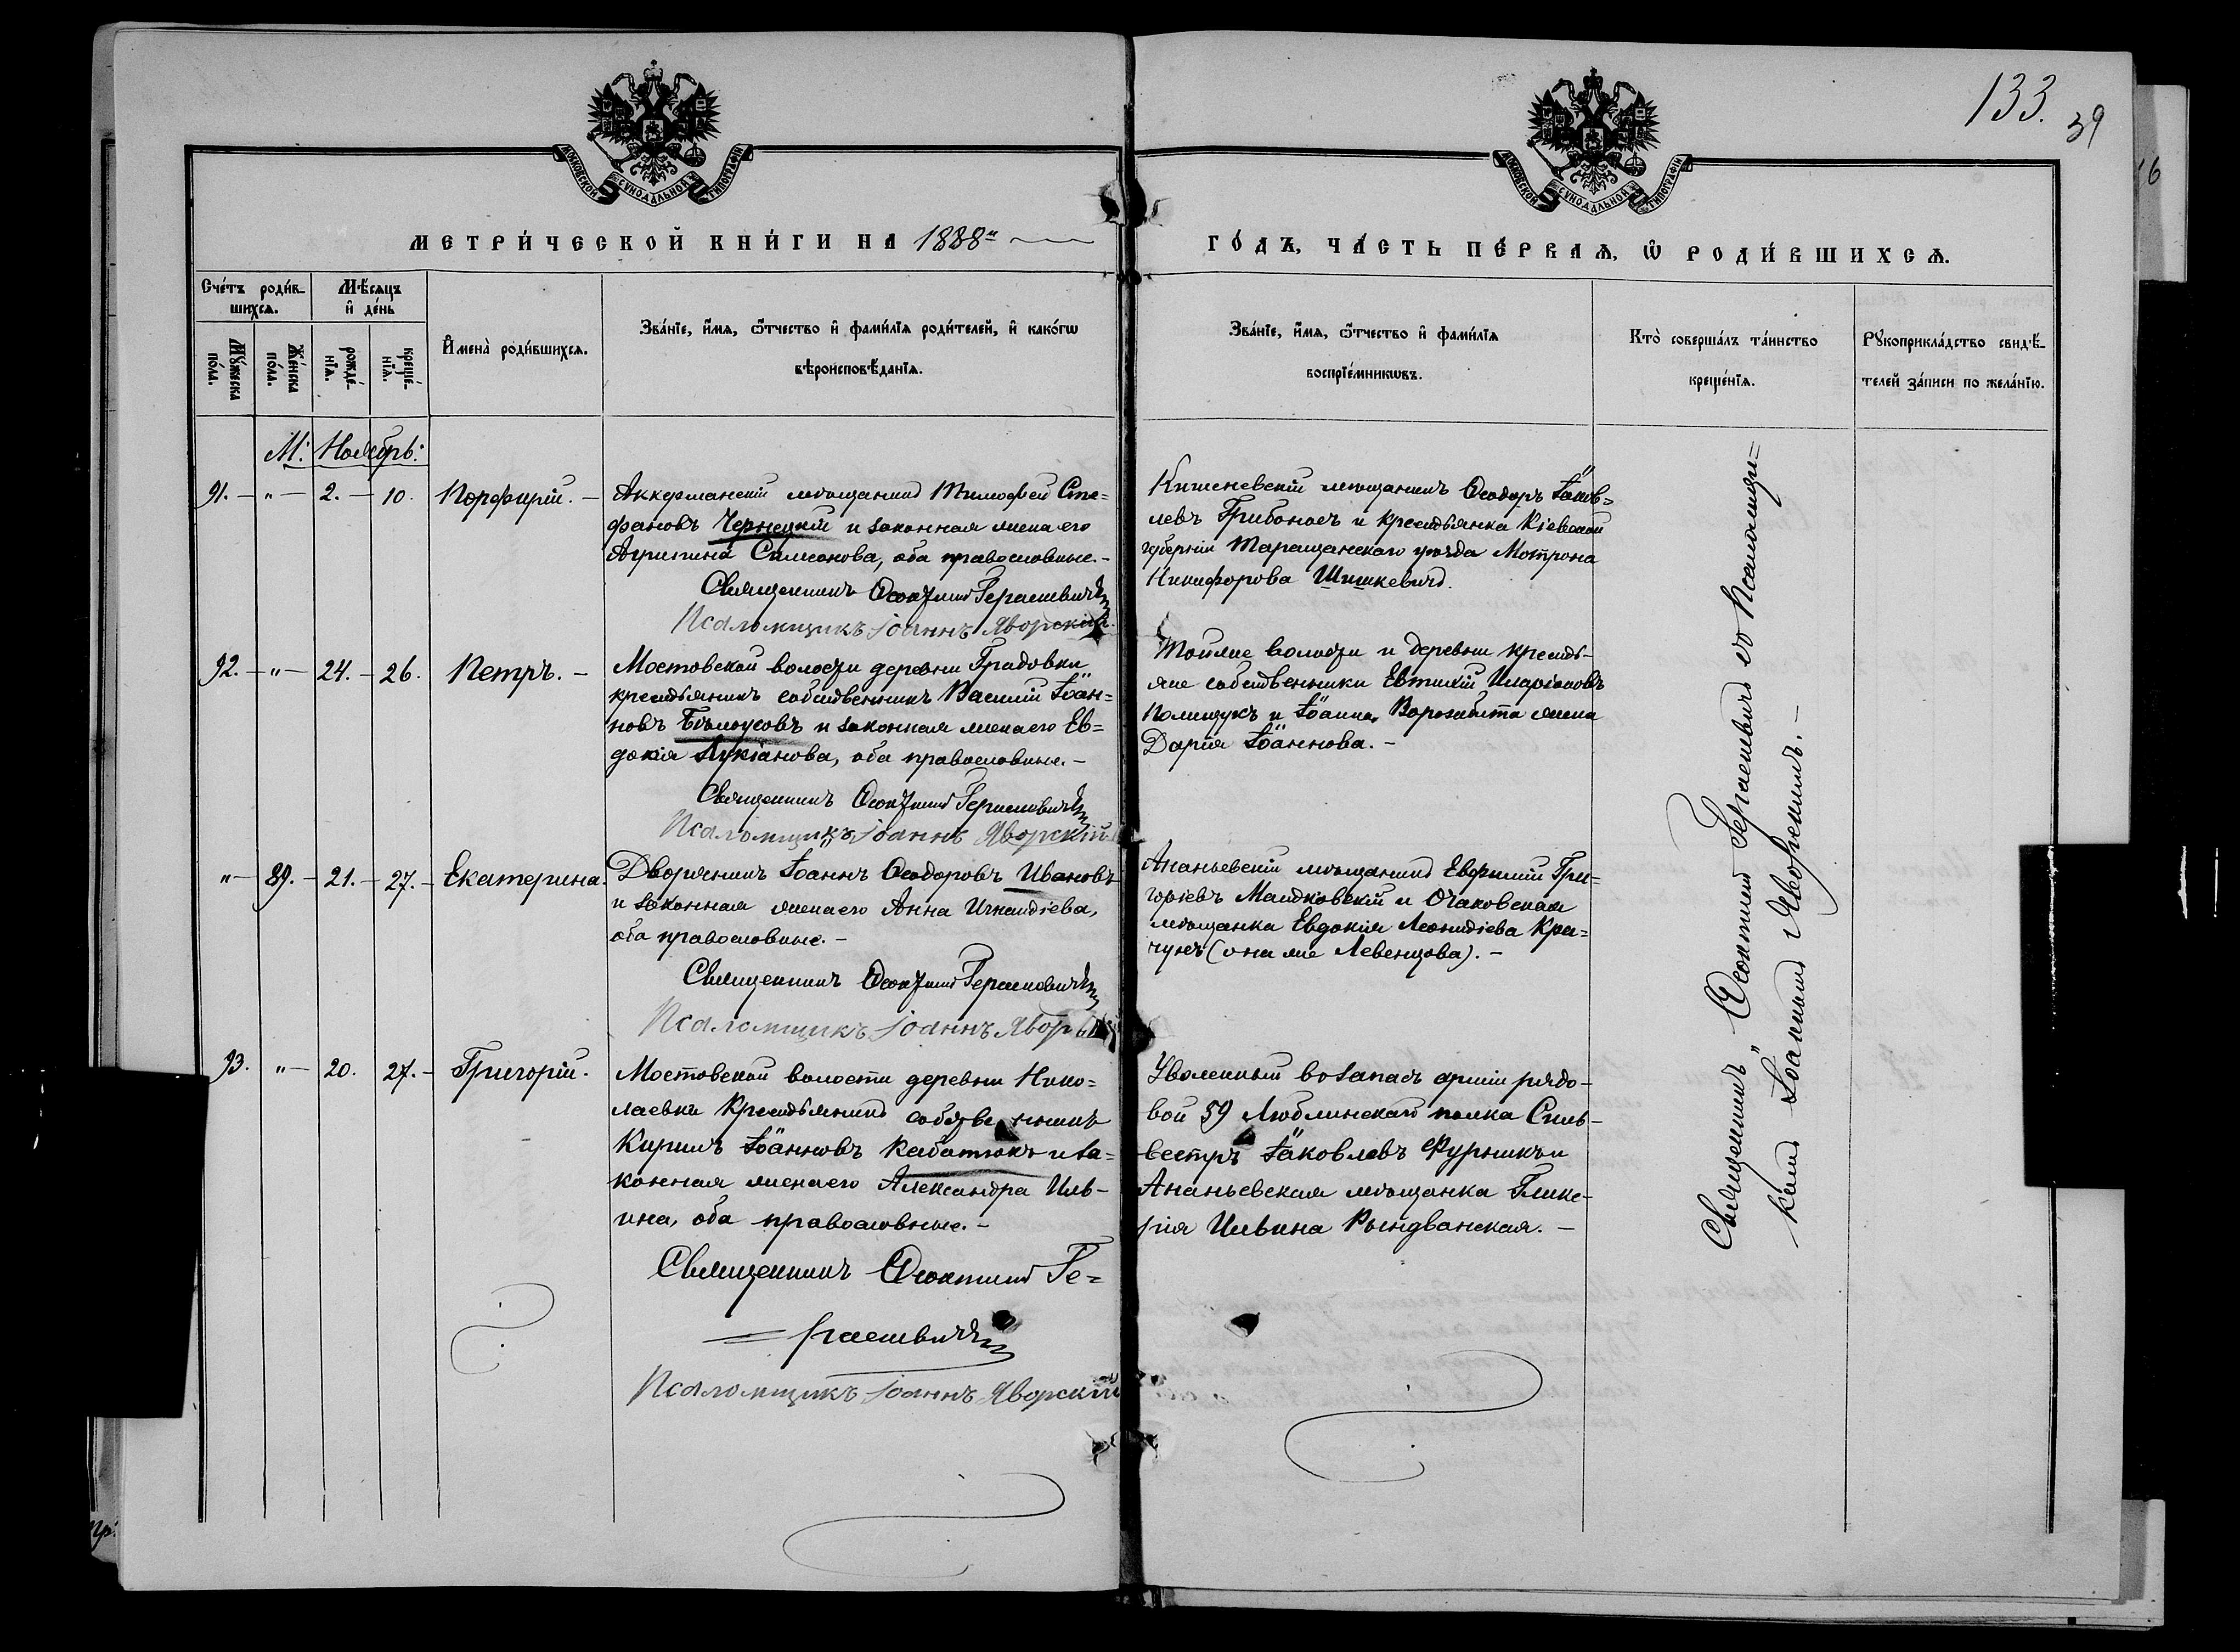 133.
39
16
МОСКОВСКОЙ СѴНОДАЛЬНОЙ ТИПОГРАФІИ
МОСКОВСКОЙ СѴНОДАЛЬНОЙ ТИПОГРАФІИ
МЕТРИ́ЧЕСКОЙ КНИ́ГИ НА 1888й
ГО́ДЪ, ЧА́СТЬ ПЕ́РВАѦ, Ѡ҆ РОДИ́ВШИХСѦ.
Сче́тъ роди́в-
шихсѧ.
Мѣ́сѧцъ
и҆ де́нь
Мꙋ́жеска
по́ла.
Же́нска
по́ла.
рожде́-
нїѧ.
креще́-
нїѧ.
И҆мена̀ роди́вшихсѧ.
Зва́нїе, и҆́мѧ, ѻ҆́тчество и҆ фами́лїѧ роди́телей, и҆ како́гѡ
вѣроисповѣ́данїѧ.
Зва́нїе, и҆́мѧ, ѻ҆́тчество и҆ фами́лїѧ
воспрїе́мникѡвъ.
Кто̀ соверша́лъ та́инство
креще́нїѧ.
Рꙋкоприкла́дство свидѣ́-
телей за́писи по жела́нїю.
М: Ноябрь:
91. — „ — 2. — 10. Порфирій. —
Аккерманскій мѣщанинъ Тимофей Сте=
фановъ Чернецкій и законная жена его
Агрипина Симеонова, оба православные. —
Священникъ Ѳеоктистъ Герасимовичъ
Псаломщикъ Іоаннъ Яворскій.
Кишеневскій мѣщанинъ Ѳеодоръ Іаков=
левъ Грибоносъ и крестьянка Кіевской
губерніи Таращанскаго уѣзда Мотрона
Никифорова Шишкевичъ.
92. — „ — 24. — 26. Петръ. —
Мостовской волости деревни Градовки
крестьянинъ собственникъ Василій Іоан=
новъ Бѣлоусовъ и законная жена его Ев=
докія Лукіанова, оба православные. —
Священникъ Ѳеоктистъ Герасимовичъ
Псаломщикъ Іоаннъ Яворскій
Той же волости и деревни крестья-
не собственники Евтихій Иларіоновъ
Полищукъ и Іоанна Ворожбита жена
Дарія Іоаннова. —
„ — 89. — 21. — 27. — Екатерина.
Дворянинъ Іоаннъ Ѳеодоровъ Ивановъ
и законная жена его Анна Игнатіева,
оба православные. —
Священникъ Ѳеоктистъ Герасимовичъ
Псаломщикъ Іоаннъ Яворскій
Ананьевскій мѣщанинъ Евфимій Гри=
горіевъ Мандковскій и Очаковская
мѣщанка Евдокія Леонидіева Кра=
чунъ (она же Левенцова). —
93. „ — 20. 27. — Григорій.
Мостовской волости деревни Нико=
лаевки крестьянинъ собственникъ
Кирилъ Іоанновъ Кабатюкъ и за=
конная жена его Александра Иль-
ина, оба православные. —
Священникъ Ѳеоктистъ Ге=
= расимовичъ
Псаломщикъ Іоаннъ Яворскій
Уволенный въ запасъ арміи рядо-
вой 59 Люблинскаго полка Силь-
вестръ Іаковлевъ Фурникъ и
Ананьевская мѣщанка Глике-
рія Ильина Рындванская. —
Священникъ Ѳеоктистъ Герасимовичъ съ Псаломщи=
комъ Іоанномъ Яворскимъ. —